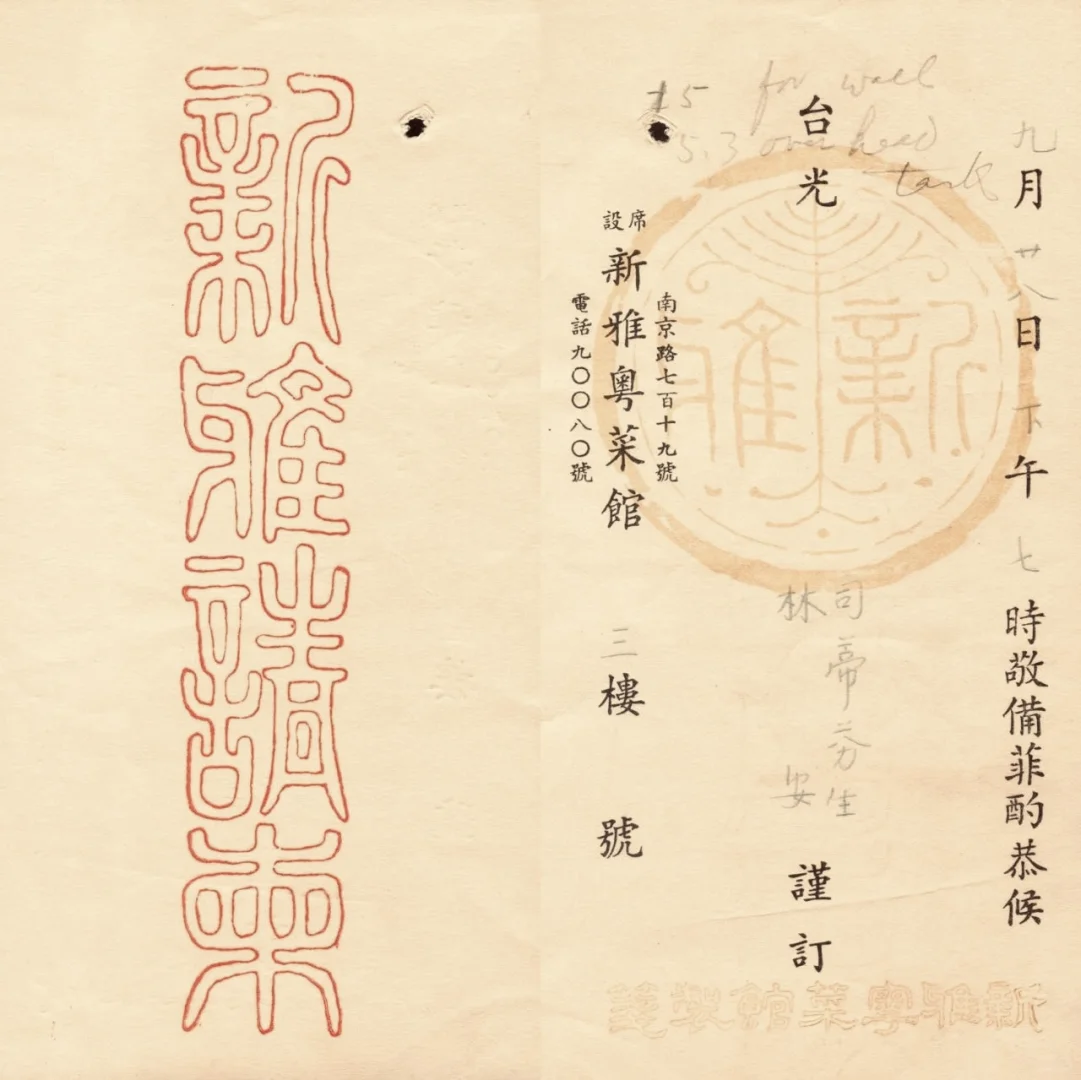 新雅請柬
for wall
5.3 over head
tank
九月廿八日下午七時敬備菲酌恭候
台光
司蒂芬生
林安
謹訂
席設
南京路七百十九號
新雅粵菜館 三樓 號
電話九〇〇八〇號
新雅
新雅粵菜館製箋